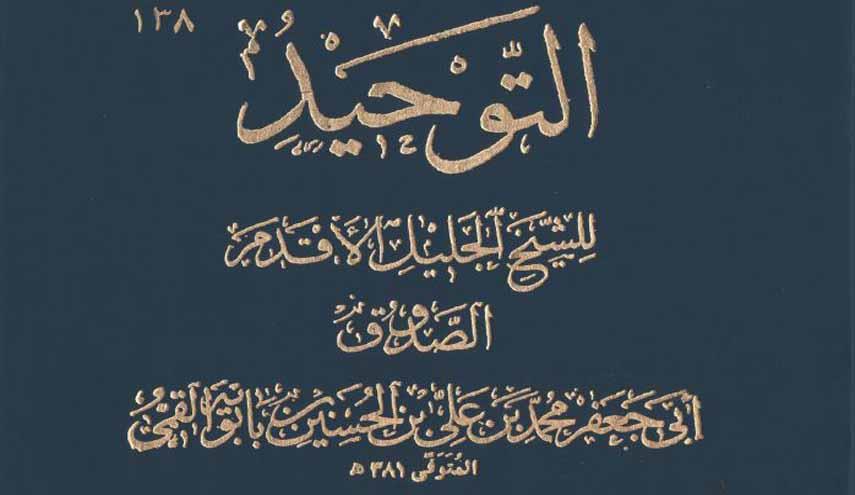 ١٣٨
التَّوْحِيدُ
لِلشَّيْخِ الْجَلِيْلِ الْأَقْدَمِ
الصَّدُوْقِ
أَبِي جَعْفَر مُحَمَّد بْن عَلِيِّ بْنِ الْحُسَيْنِ بْنِ بَابَوَيْهِ الْقُمِّيِّ
المُتَوَفَّى ٣٨١ هـ